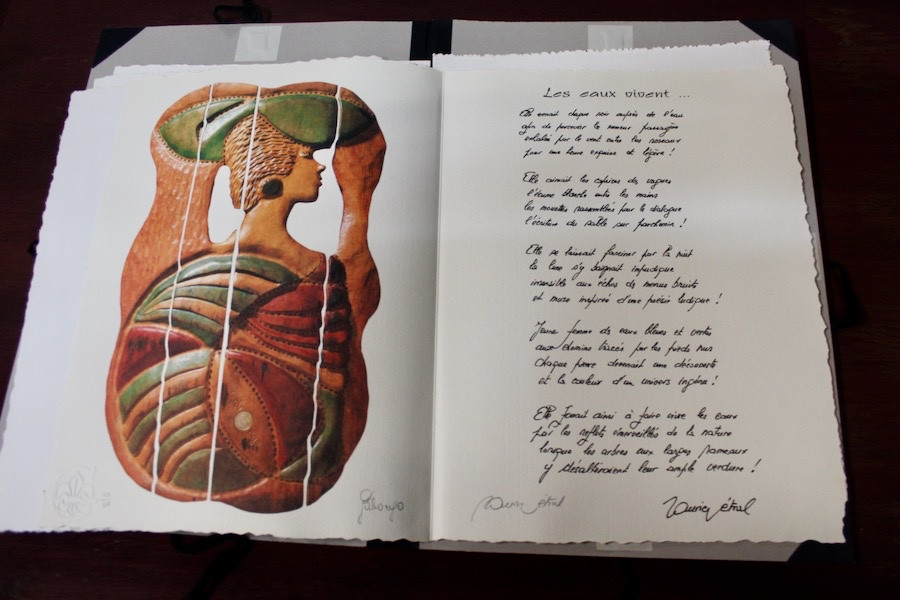 Les eaux vivent ...
Elle venait chaque soir auprès de l'eau
afin de percevoir la rumeur passagère
exhalée par le vent entre les roseaux
pour une heure exquise et légère !
Elle aimait les caprices des vagues
l'écume blanche entre les mains
les mouettes rassemblées pour le dialogue
l'écriture du sable sur parchemin !
Elle se laissait fasciner par la nuit
la lune s'y baignait impudique
insensible aux échos de menus bruits
et muse inspirée d'une poésie ludique !
Jeune femme de eaux bleues et vertes
aux chemins tracés par les pieds nus
chaque pierre devenait une découverte
et la couleur d'un univers ingénu !
Elle jouait ainsi à faire vivre les eaux
par les reflets émerveillés de la nature
lorsque les arbres aux larges rameaux
y désaltéraient leur ample verdure !